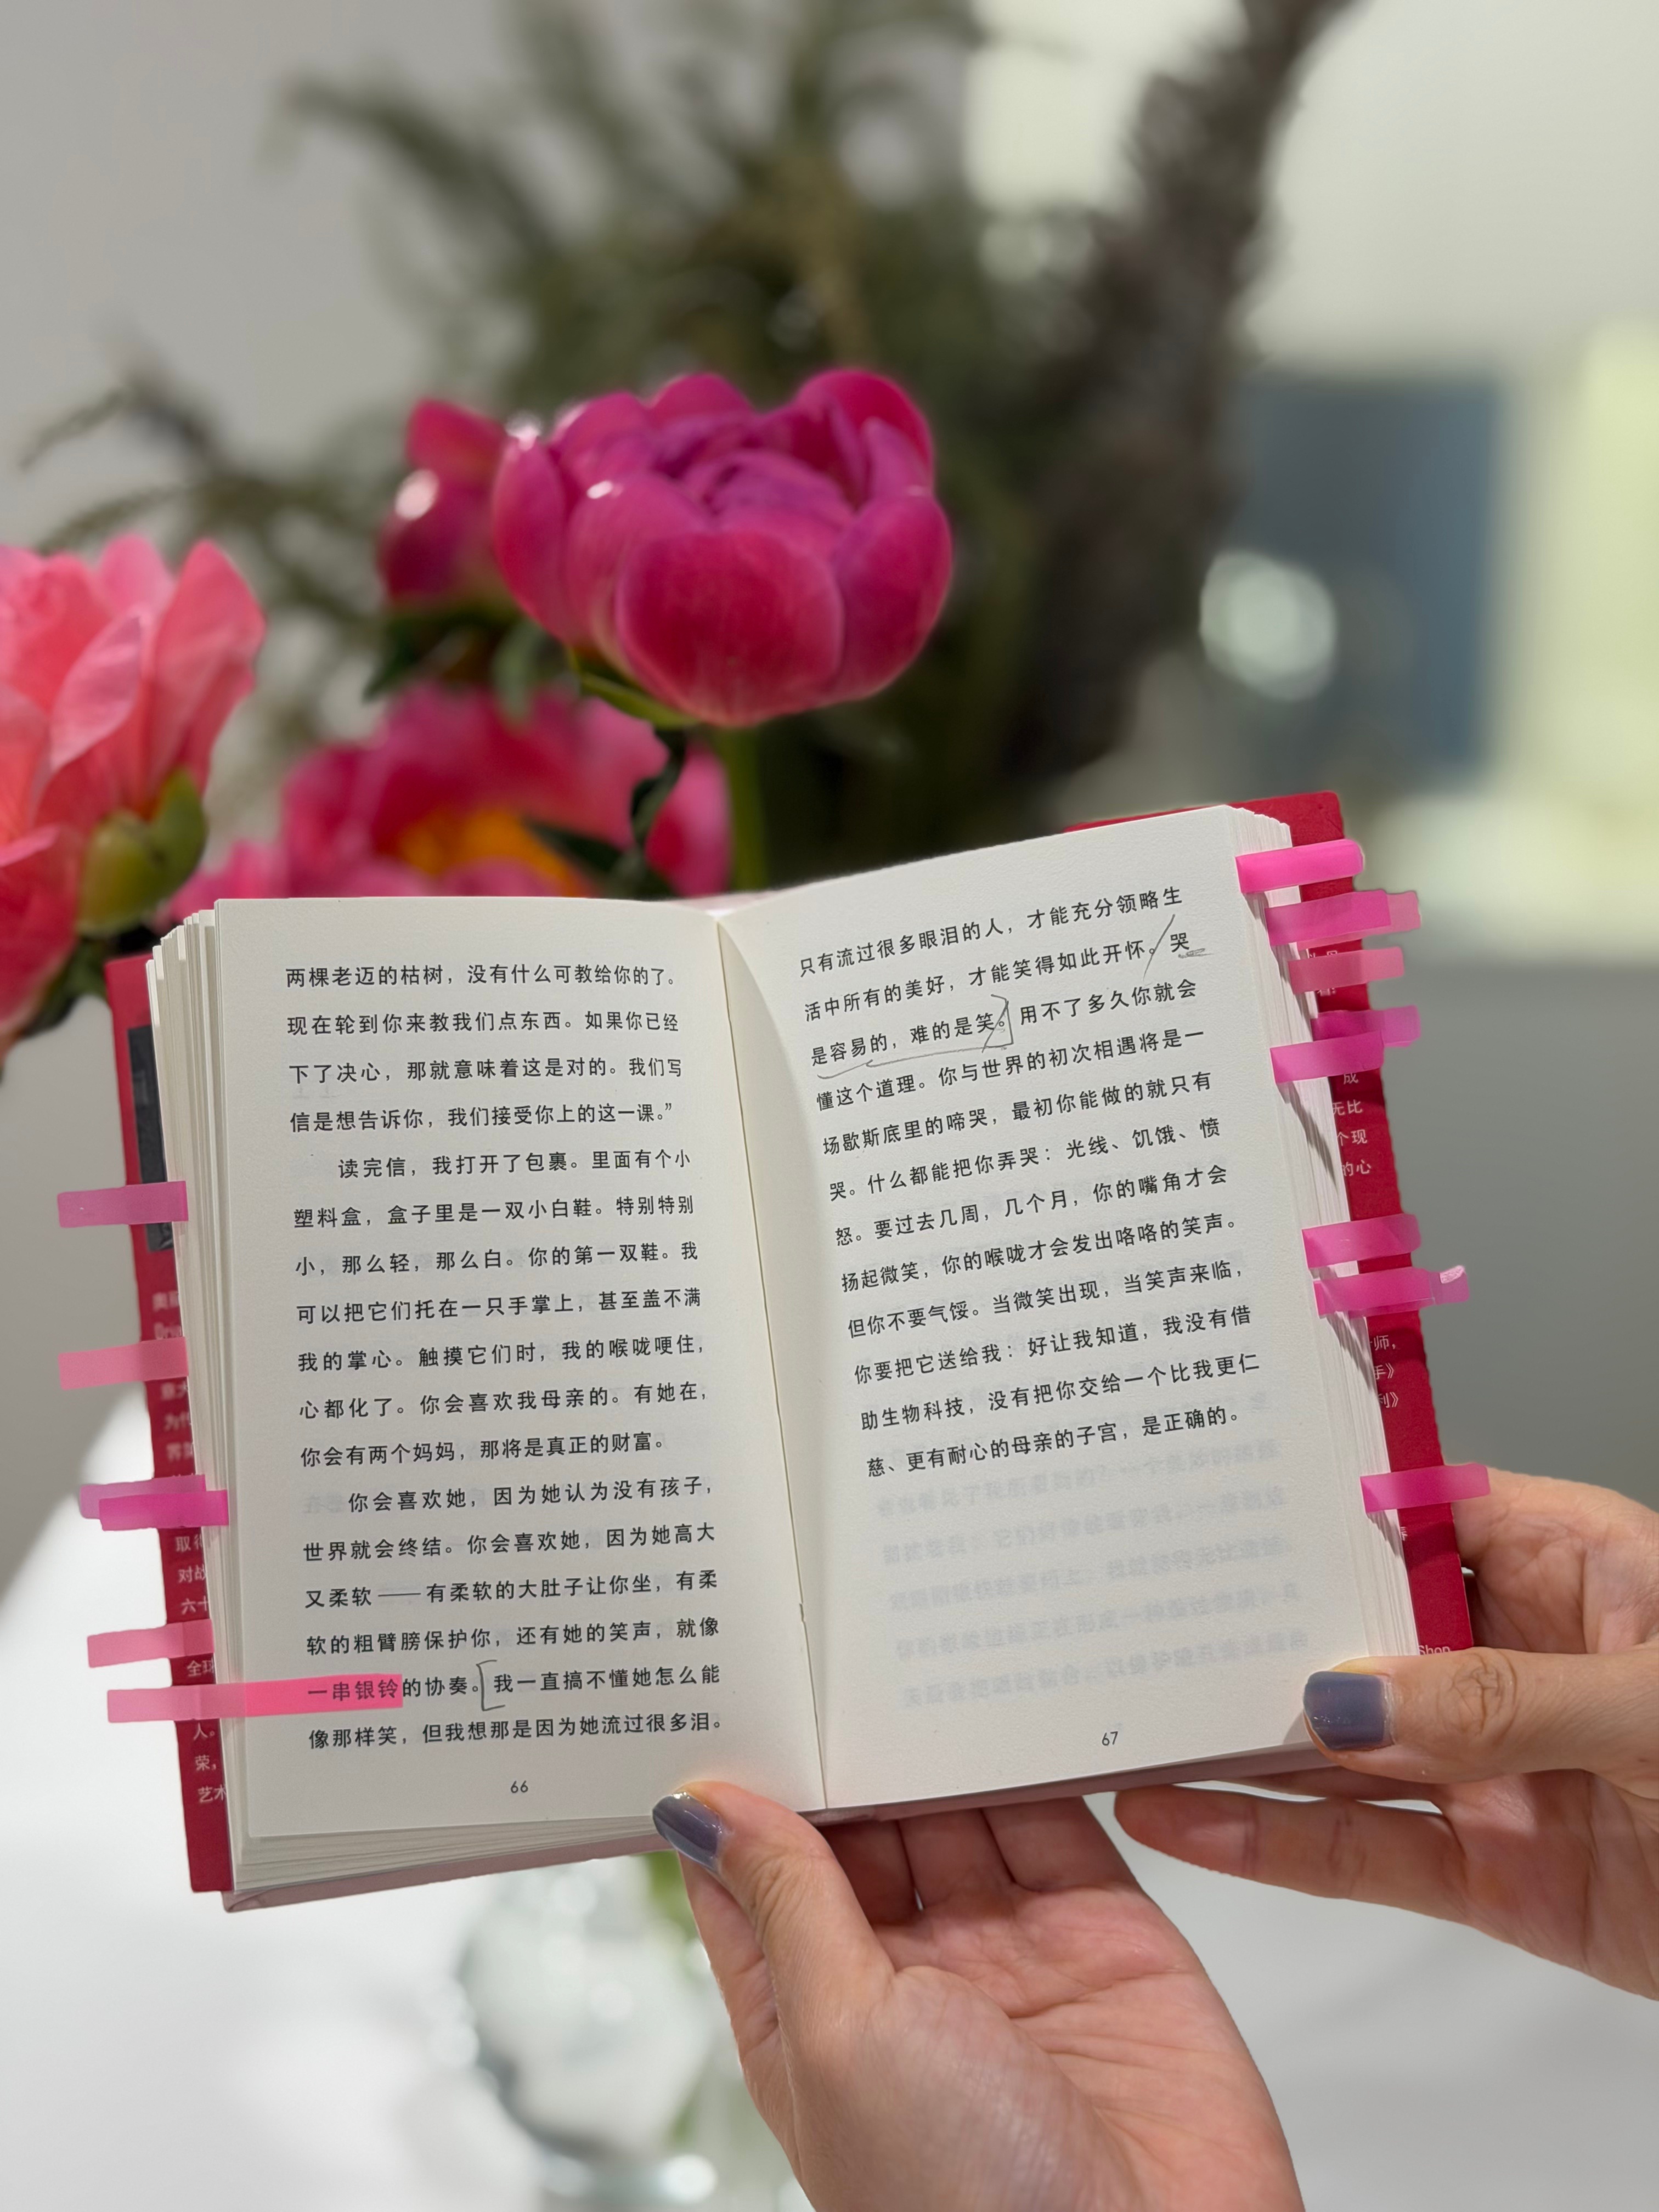 两棵老迈的枯树，没有什么可教给你的了。
现在轮到你来教我们点东西。如果你已经
下了决心，那就意味着这是对的。我们写
信是想告诉你，我们接受你上的这一课。”
读完信，我打开了包裹。里面有个小
塑料盒，盒子里是一双小白鞋。特别特别
小，那么轻，那么白。你的第一双鞋。我
可以把它们托在一只手掌上，甚至盖不满
我的掌心。触摸它们时，我的喉咙哽住，
心都化了。你会喜欢我母亲的。有她在，
你会有两个妈妈，那将是真正的财富。
你会喜欢她，因为她认为没有孩子，
世界就会终结。你会喜欢她，因为她高大
又柔软——有柔软的大肚子让你坐，有柔
软的粗臂膀保护你，还有她的笑声，就像
一串银铃的协奏。我一直搞不懂她怎么能
像那样笑，但我想那是因为她流过很多泪。
66
只有流过很多眼泪的人，才能充分领略生
活中所有的美好，才能笑得如此开怀。哭
是容易的，难的是笑。用不了多久你就会
懂这个道理。你与世界的初次相遇将是一
场歇斯底里的啼哭，最初你能做的就只有
哭。什么都能把你弄哭：光线、饥饿、愤
怒。要过去几周，几个月，你的嘴角才会
扬起微笑，你的喉咙才会发出咯咯的笑声。
但你不要气馁。当微笑出现，当笑声来临，
你要把它送给我：好让我知道，我没有借
助生物科技，没有把你交给一个比我更仁
慈、更有耐心的母亲的子宫，是正确的。
67
成
无比
个现
的心
师，
手》
利》
Shop
取得
对战
六十
全球
人。
荣，
艺术